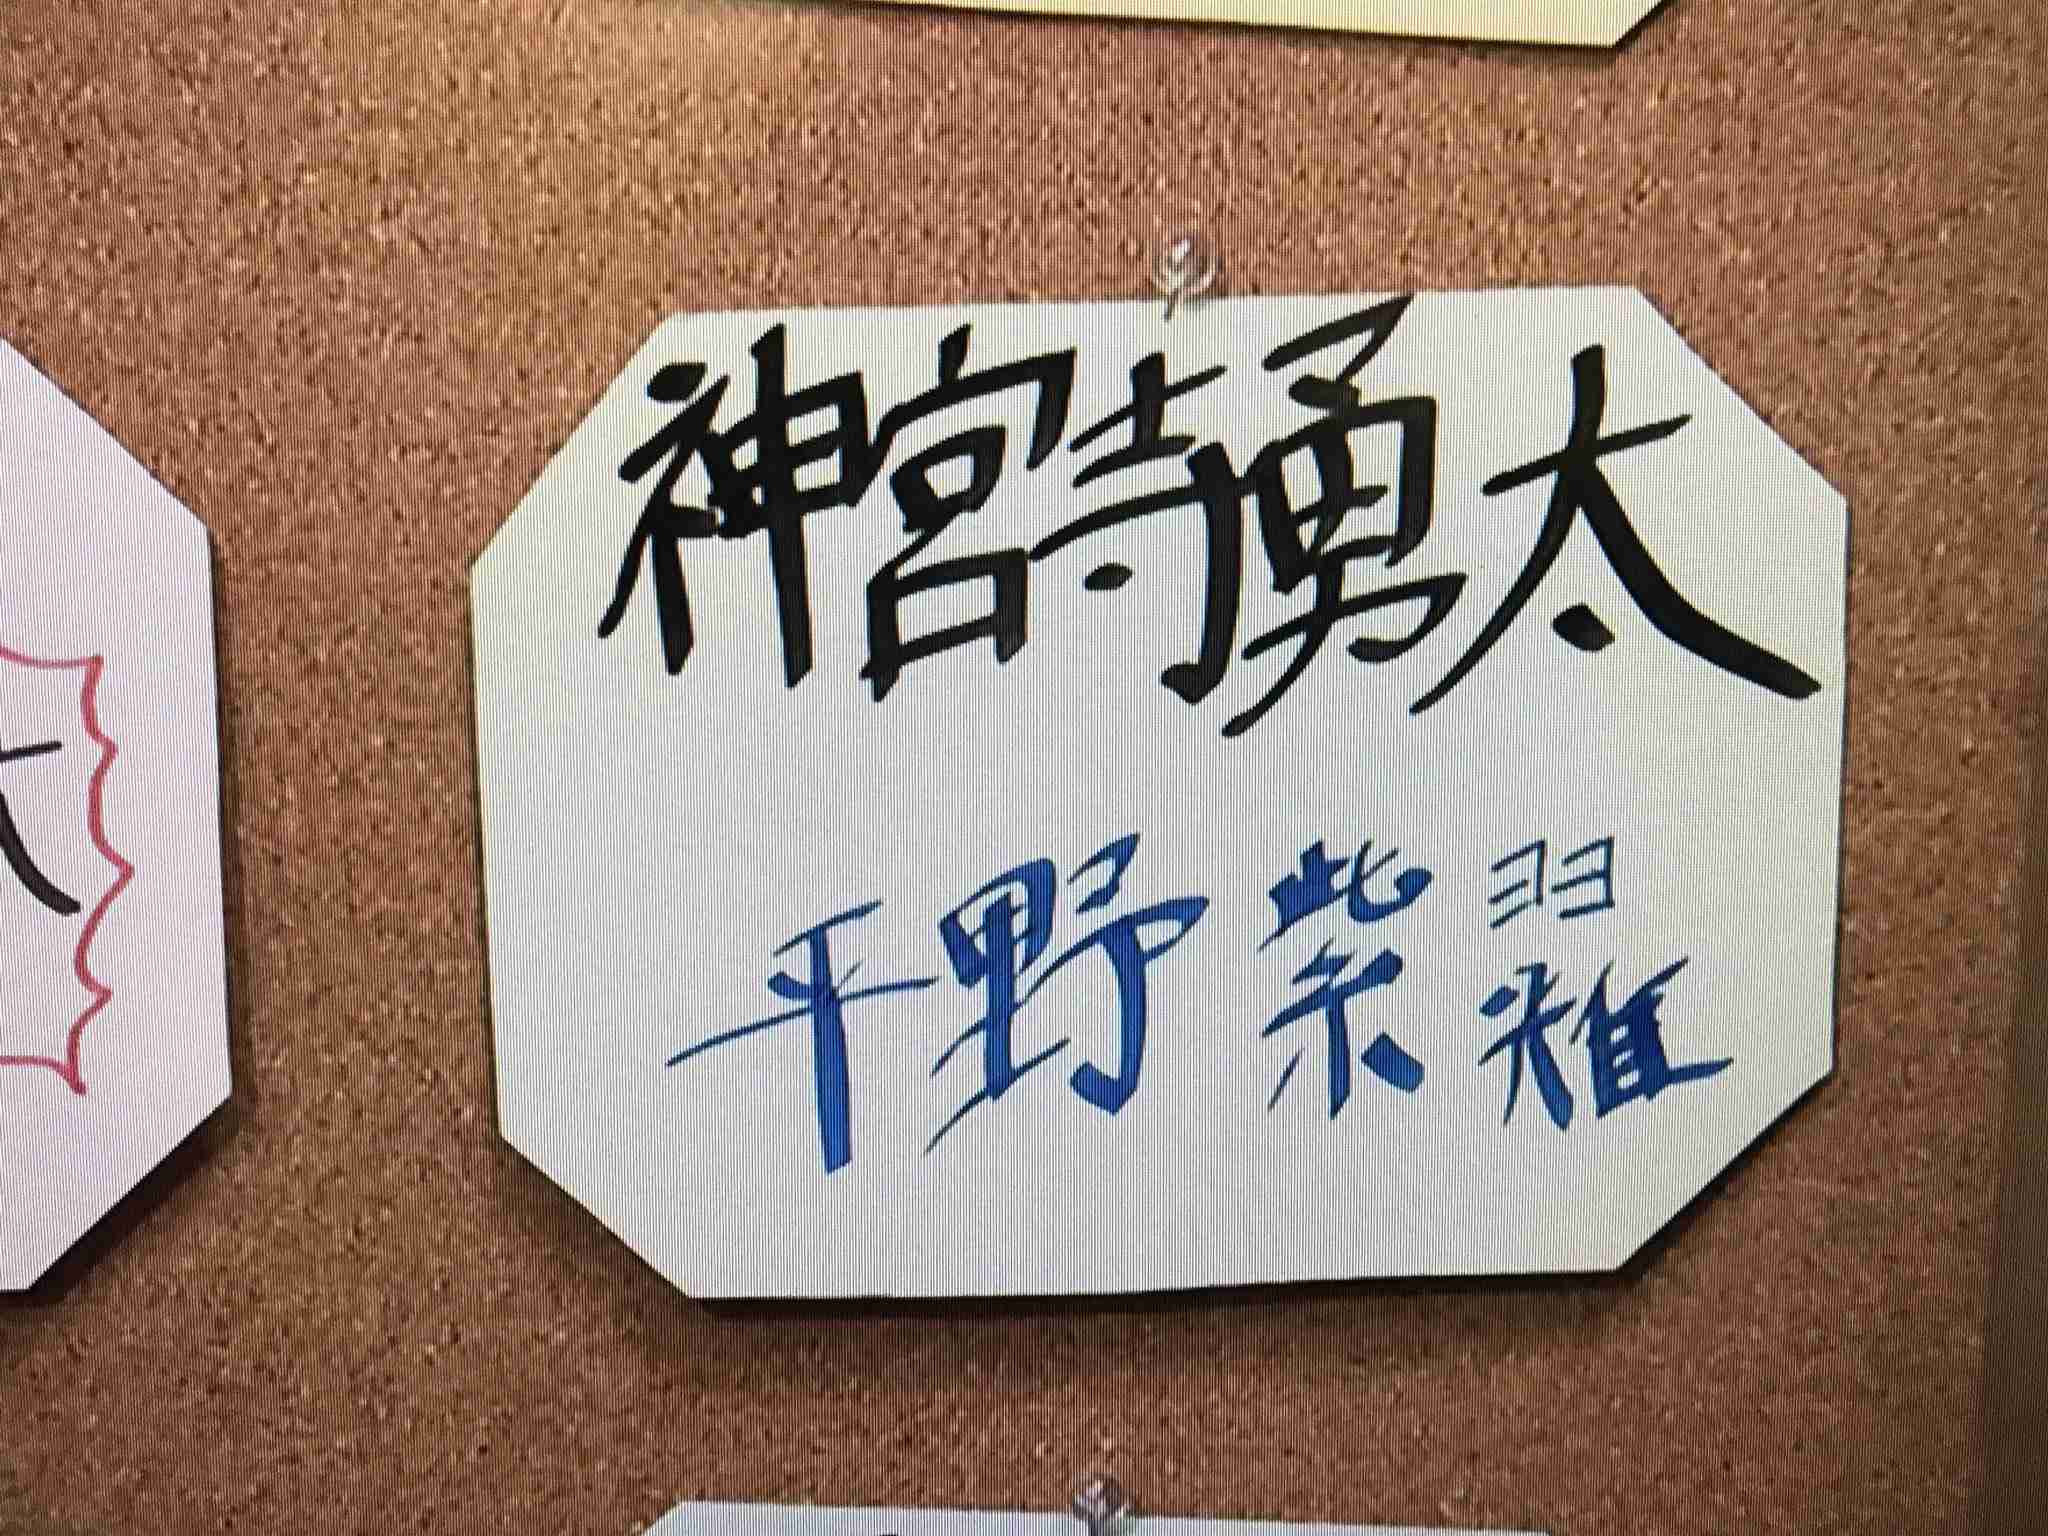 神宮寺勇太
平野紫耀